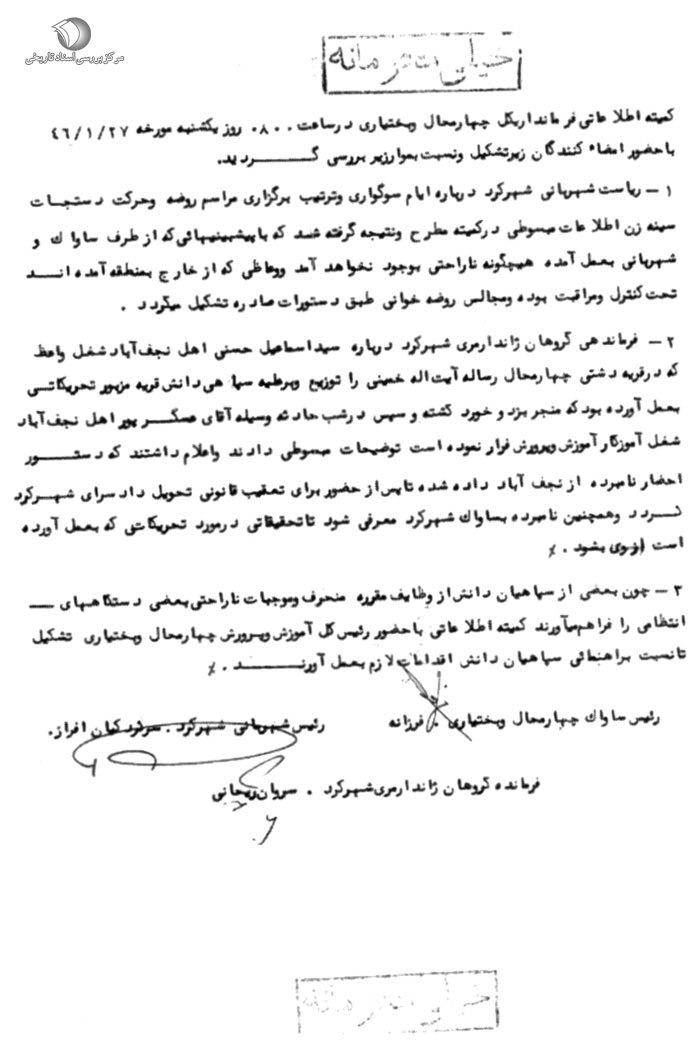 مرکز بررسی اسناد تاریخی
خیلی محرمانه
کمیته اطلاعاتی فرمانداریکل چهارمحال وبختیاری درساعت ۰۸۰۰ روز یکشنبه مورخه ۴۶/۱/۲۷
باحضور امضاء کنندگان زیرتشکیل ونسبت بموارزیر بررسی گردید.
۱ – ریاست شهربانی شهرکرد درباره ایام سوگواری وترتیب برگزاری مراسم روضه وحرکت دستجات
سینه زن اطلاعات مبسوطی درکمیته مطرح ونتیجه گرفته شد که باپیشبینیهائی که از طرف ساواک و
شهربانی بعمل آمده هیچگونه ناراحتی بوجود نخواهد آمد ووعاظی که از خارج بمنطقه آمده اند
تحت کنترل ومراقبت بوده ومجالس روضه خوانی طبق دستورات صادره تشکیل میگردد .
۲ – فرماندهی گروهان ژاندارمری شهرکرد درباره سیداسماعیل حسنی اهل نجف آباد شغل واعظ
که درقریه دشتی چهارمحال رساله آیت اله خمینی را توزیع وبرعلیه سپاهی دانش قریه مزبور تحریکاتی
بعمل آورده بود که منجر بزد و خورد گشته و سپس درشب حادثه وسیله آقای عسگر پور اهل نجف آباد
شغل آموزگار آموزش وپرورش فرار نموده است توضیحات مبسوطی دادند واعلام داشتند که دستور
احضار نامبرده از نجف آباد داده شده تاپس از حضور برای تعقیب قانونی تحویل دادسرای شهرکرد
گردد وهمچنین نامبرده بساواک شهرکرد معرفی شود تاتحقیقاتی درمورد تحریکاتی که بعمل آورده
است ازوی بشود . ٪
۳ – چون بعضی از سپاهیان دانش از وظایف مقرره منحرف وموجبات ناراحتی بعضی دستگاههای
انتظامی را فراهم میآورند کمیته اطلاعاتی باحضور رئیس کل آموزش وپرورش چهارمحال وبختیاری تشکیل
تانسبت براهنمائی سپاهیان دانش اقدامات لازم بعمل آورند . ٪
رئیس ساواک چهارمحال وبختیاری . فرزانه رئیس شهربانی شهرکرد . سرگرد کیان افراز.
فرمانده گروهان ژاندارمری شهرکرد . سروان ریحانی
خیلی محرمانه